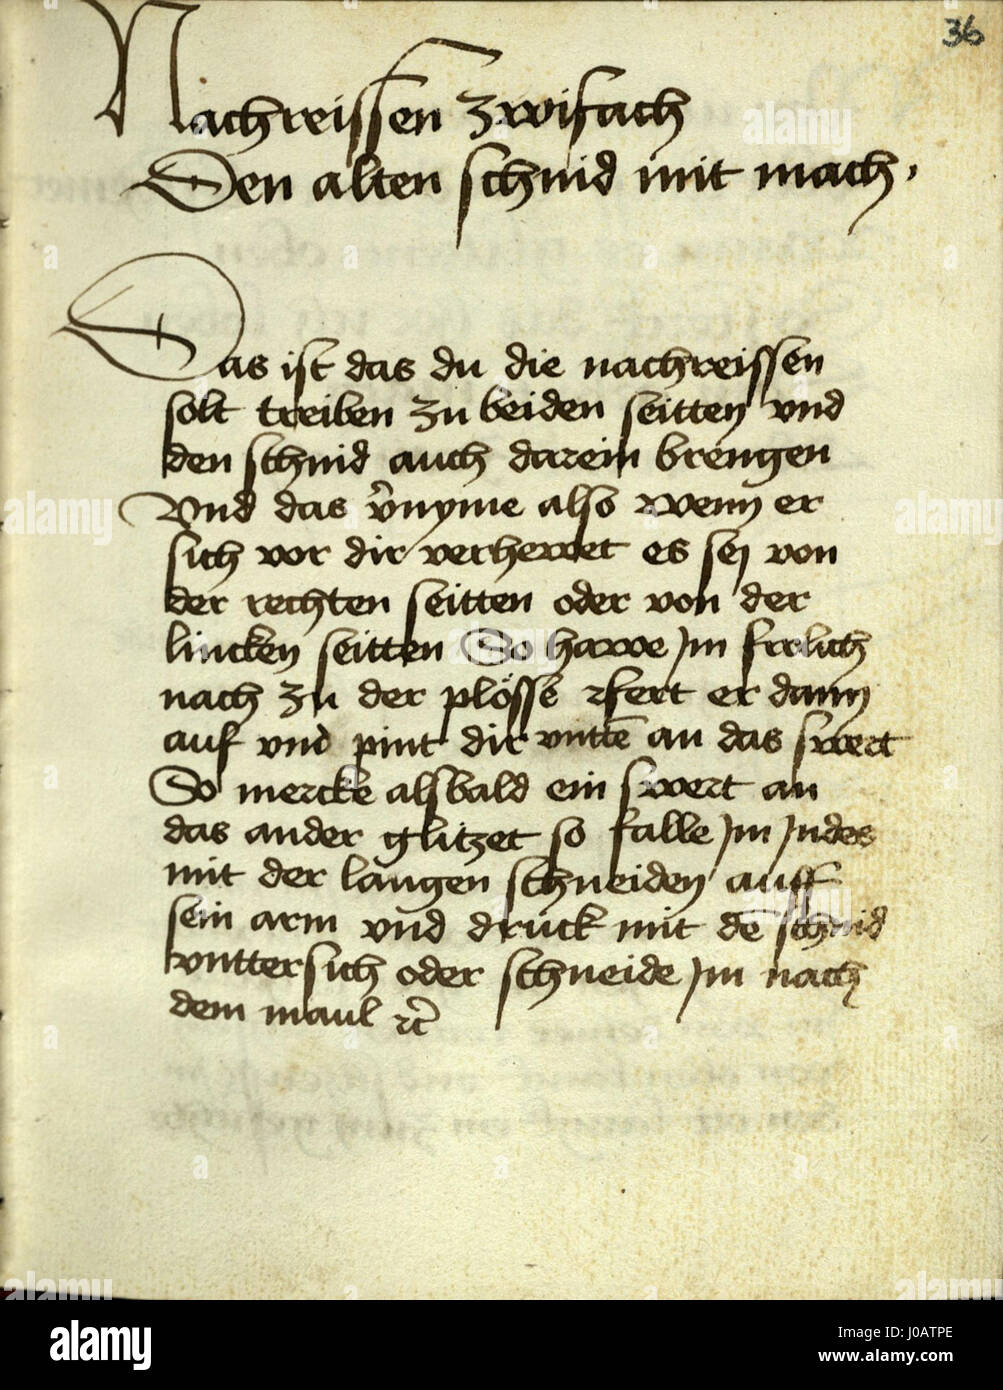 36
Nachreissen zwifach
Den alten schnid mit mach,
Das ist das du die nachreissen
solt treiben zu beiden seitten vnd
den schnid auch darein brengen
Vnd das v̉nyme also Wenn er
sich vor dir verhewet es sej von
der rechten seitten oder von der
lincken seitten So hawe jm frelich
nach zu der plösse fert er dann
auf vnd pint dir vnttē an das swert
So mercke alsbald ein swert an
das ander glitzet so falle jm jndes
mit der langen schneiden auff
sein arm vnd druck mit dē schnid
vnttersich oder schneide jm nach
dem maul ꝛc̄
alamy
Image ID: J0ATPE
www.alamy.com